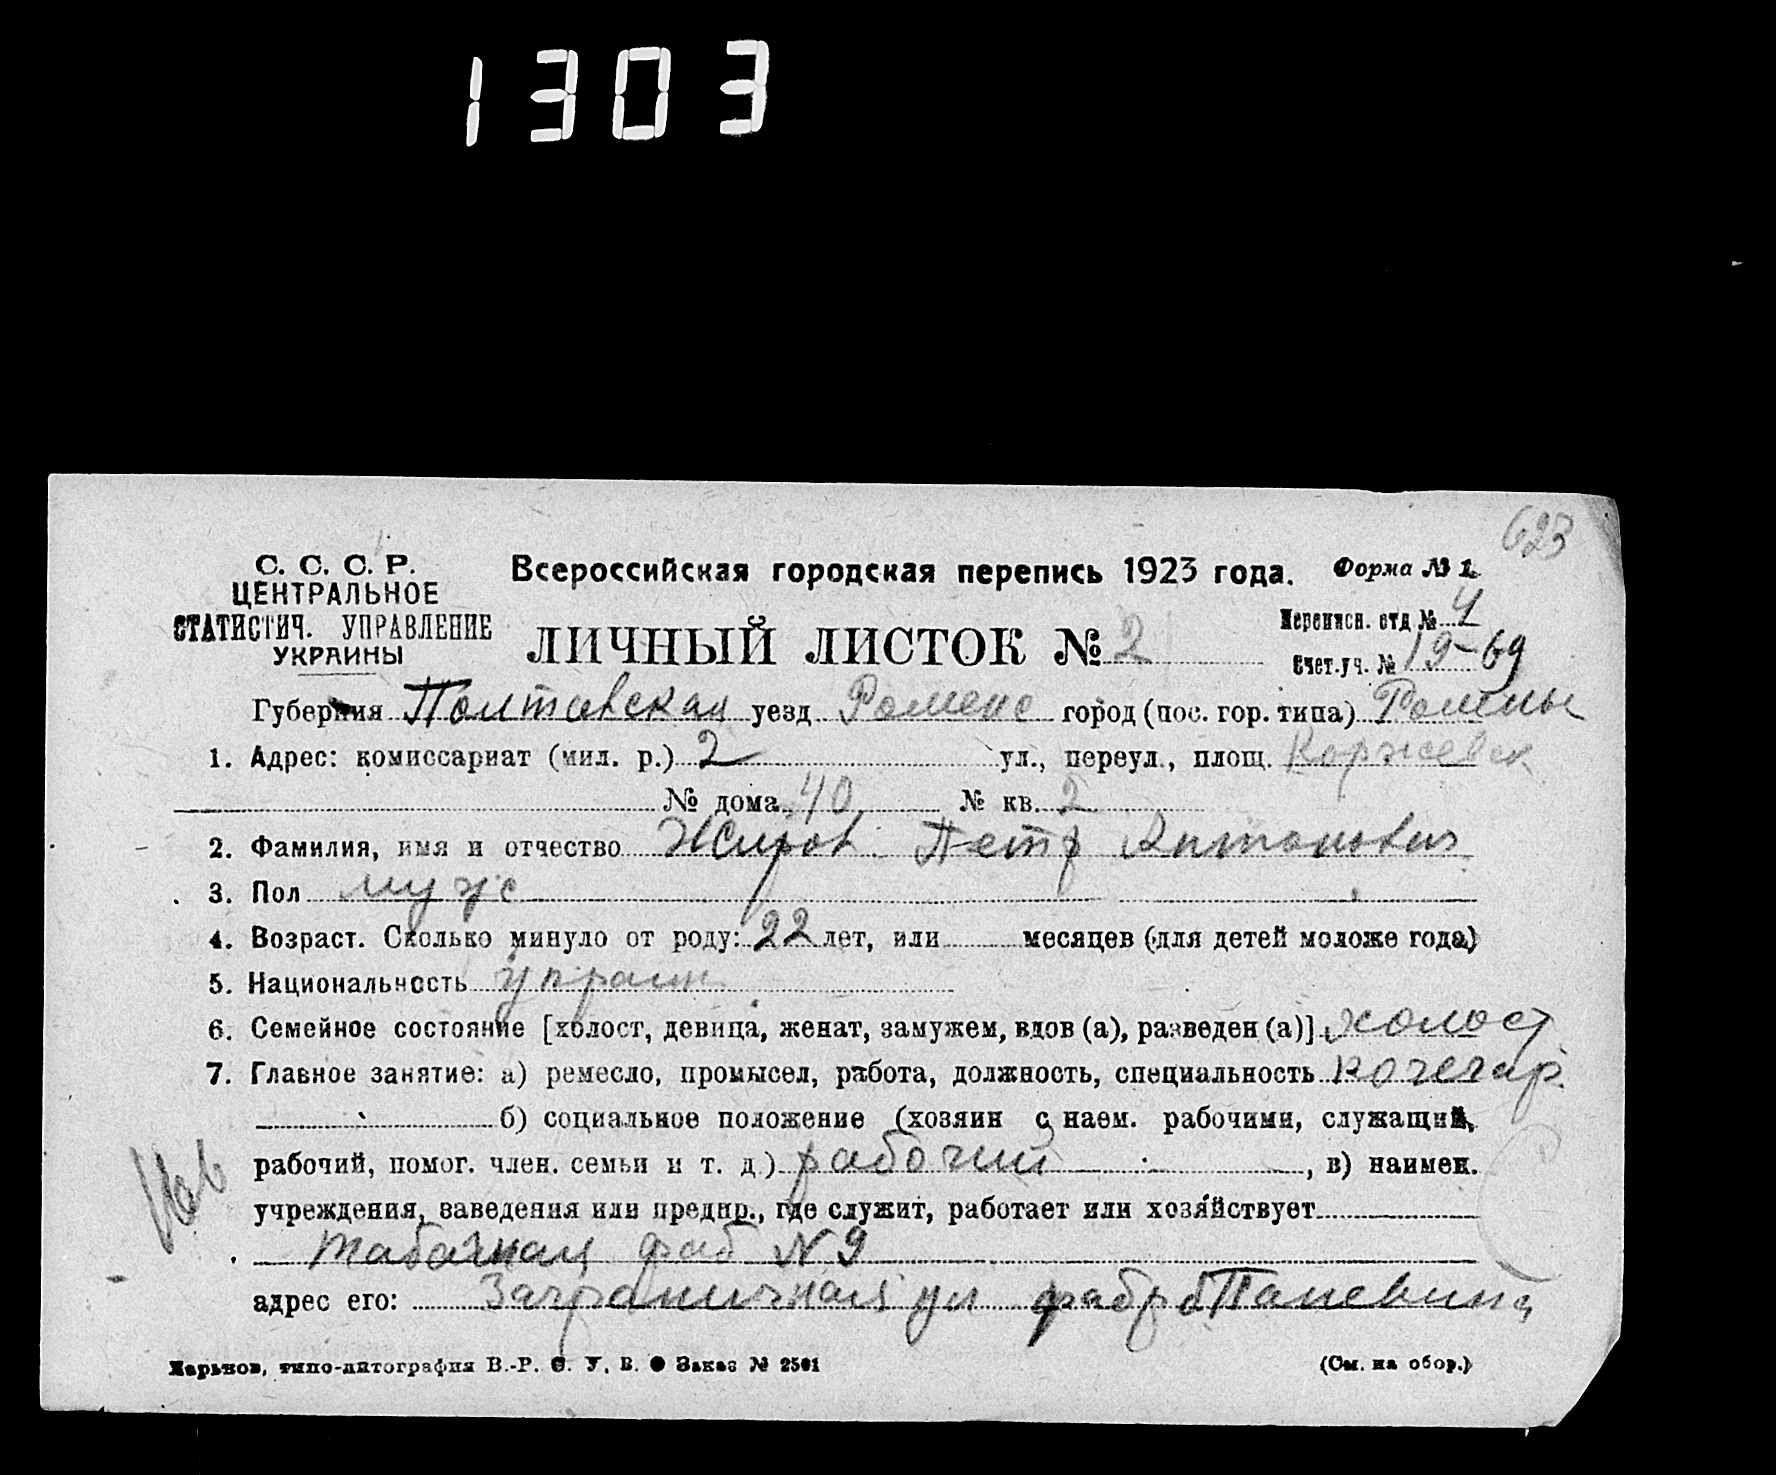 1303
623
С. С. С. Р.
ЦЕНТРАЛЬНОЕ
СТАТИСТИЧ. УПРАВЛЕНИЕ
УКРАИНЫ
Всероссийская городская перепись 1923 года.
Форма № 1.
ЛИЧНЫЙ ЛИСТОК № 2
Переписн. отд № 4
Счет.уч. № 19-69
Губерния Полтавская уезд Роменс город (пос. гор. типа) Ромны
1. Адрес: комиссариат (мил. р.) 2 ул., переул., площ. Коржевск
№ дома 40 № кв. 2
2. Фамилия, имя и отчество Жиров Петр Антонович
3. Пол муж
4. Возраст. Сколько минуло от роду: 22 лет, или месяцев (для детей моложе года)
5. Национальность украин
6. Семейное состояние [холост, девица, женат, замужем, вдов (а), разведен (а)] холост
7. Главное занятие: а) ремесло, промысел, работа, должность, специальность кочегар
б) социальное положение (хозяин с наем. рабочими, служащий,
рабочий, помог. член. семьи и т. д) рабочий, в) наимен.
учреждения, заведения или предпр., где служит, работает или хозяйствует
табачная фаб N 9
адрес его: Заграничная ул фабр
Харьков, типо-литография В.-Р. С. У. В. ● Заказ № 2501
(См. на обор.)